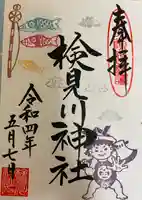 奉拝
検見川神社
令和四年
五月七日